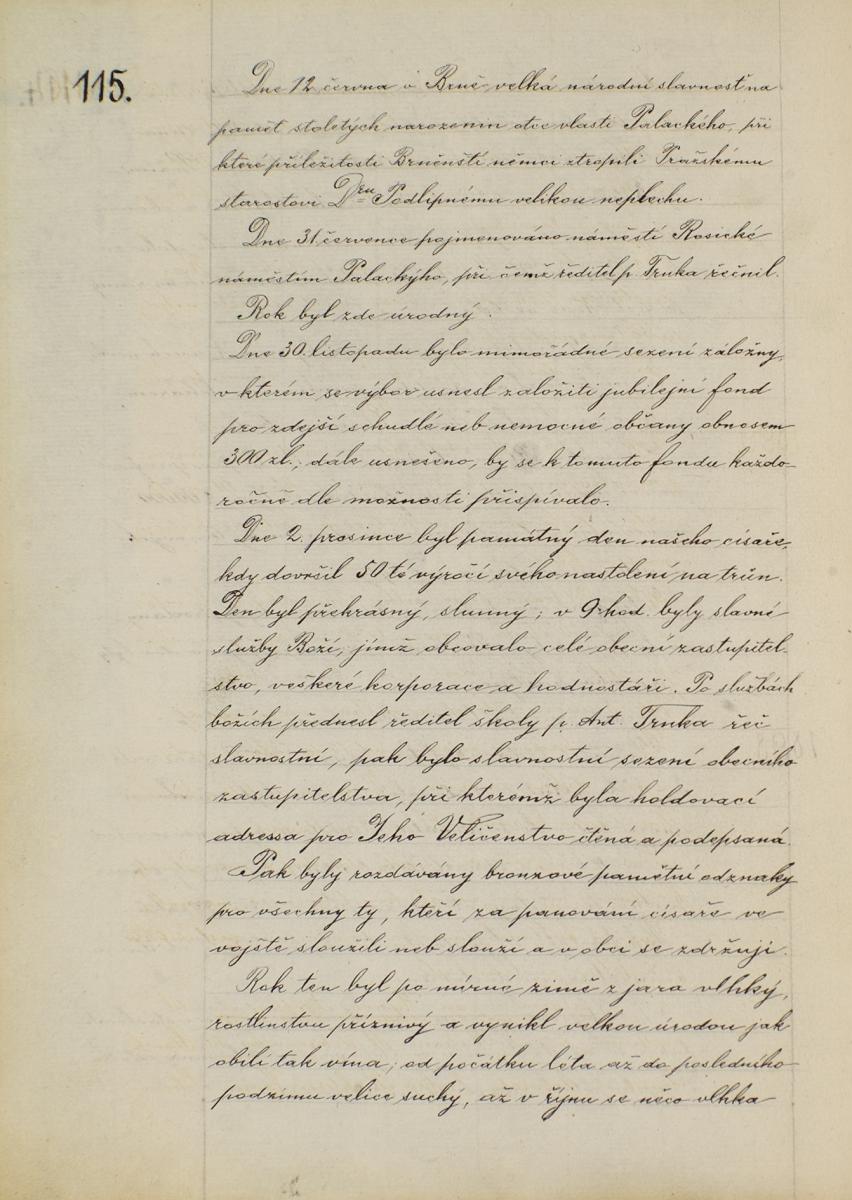 115.
Dne 12 června v Brně velká národní slavnosť na
pamět stoletých narozenin otce vlasti Palackého, při
které příležitosti Brněnští němci ztropili Pražskému
starostovi Dru Podlipnému velikou neplechu.
Dne 31. července pojmenováno náměstí Rosické
náměstím Palackýho, při čemž ředitel p. Trnka řečnil.
Rok byl zde úrodný.
Dne 30. listopadu bylo mimořádné sezení záložny,
v kterém se výbor usnesl založiti jubilejní fond
pro zdejší schudlé neb nemocné občany obnosem
300 zl.; dále usnešeno, by se k tomuto fondu každo-
ročně dle možnosti přispívalo.
Dne 2. prosince byl památný den našeho císaře,
kdy dovršil 50 té výročí svého nastolení na trůn.
Den byl překrásný, slunný; v 9 hod. byly slavné
služby Boží, jímž obcovalo celé obecní zastupitel-
stvo, veškeré korporace a hodnostáři. Po službách
božích přednesl ředitel školy p. Ant. Trnka řeč
slavnostní, pak bylo slavnostní sezení obecního
zastupitelstva, při kterémž byla holdovací
adressa pro Jeho Veličenstvo čtěná a podepsaná.
Pak byly rozdávány bronzové pamětní odznaky
pro všechny ty, kteří za panování císaře ve
vojště sloužili neb slouží a v obci se zdržují.
Rok ten byl po mírné zimě z jara vlhký,
rostlinstvu příznivý a vynikl velkou úrodou jak
obilí tak vína; od počátku léta až do posledního
podzimu velice suchý, až v říjnu se něco vlhka